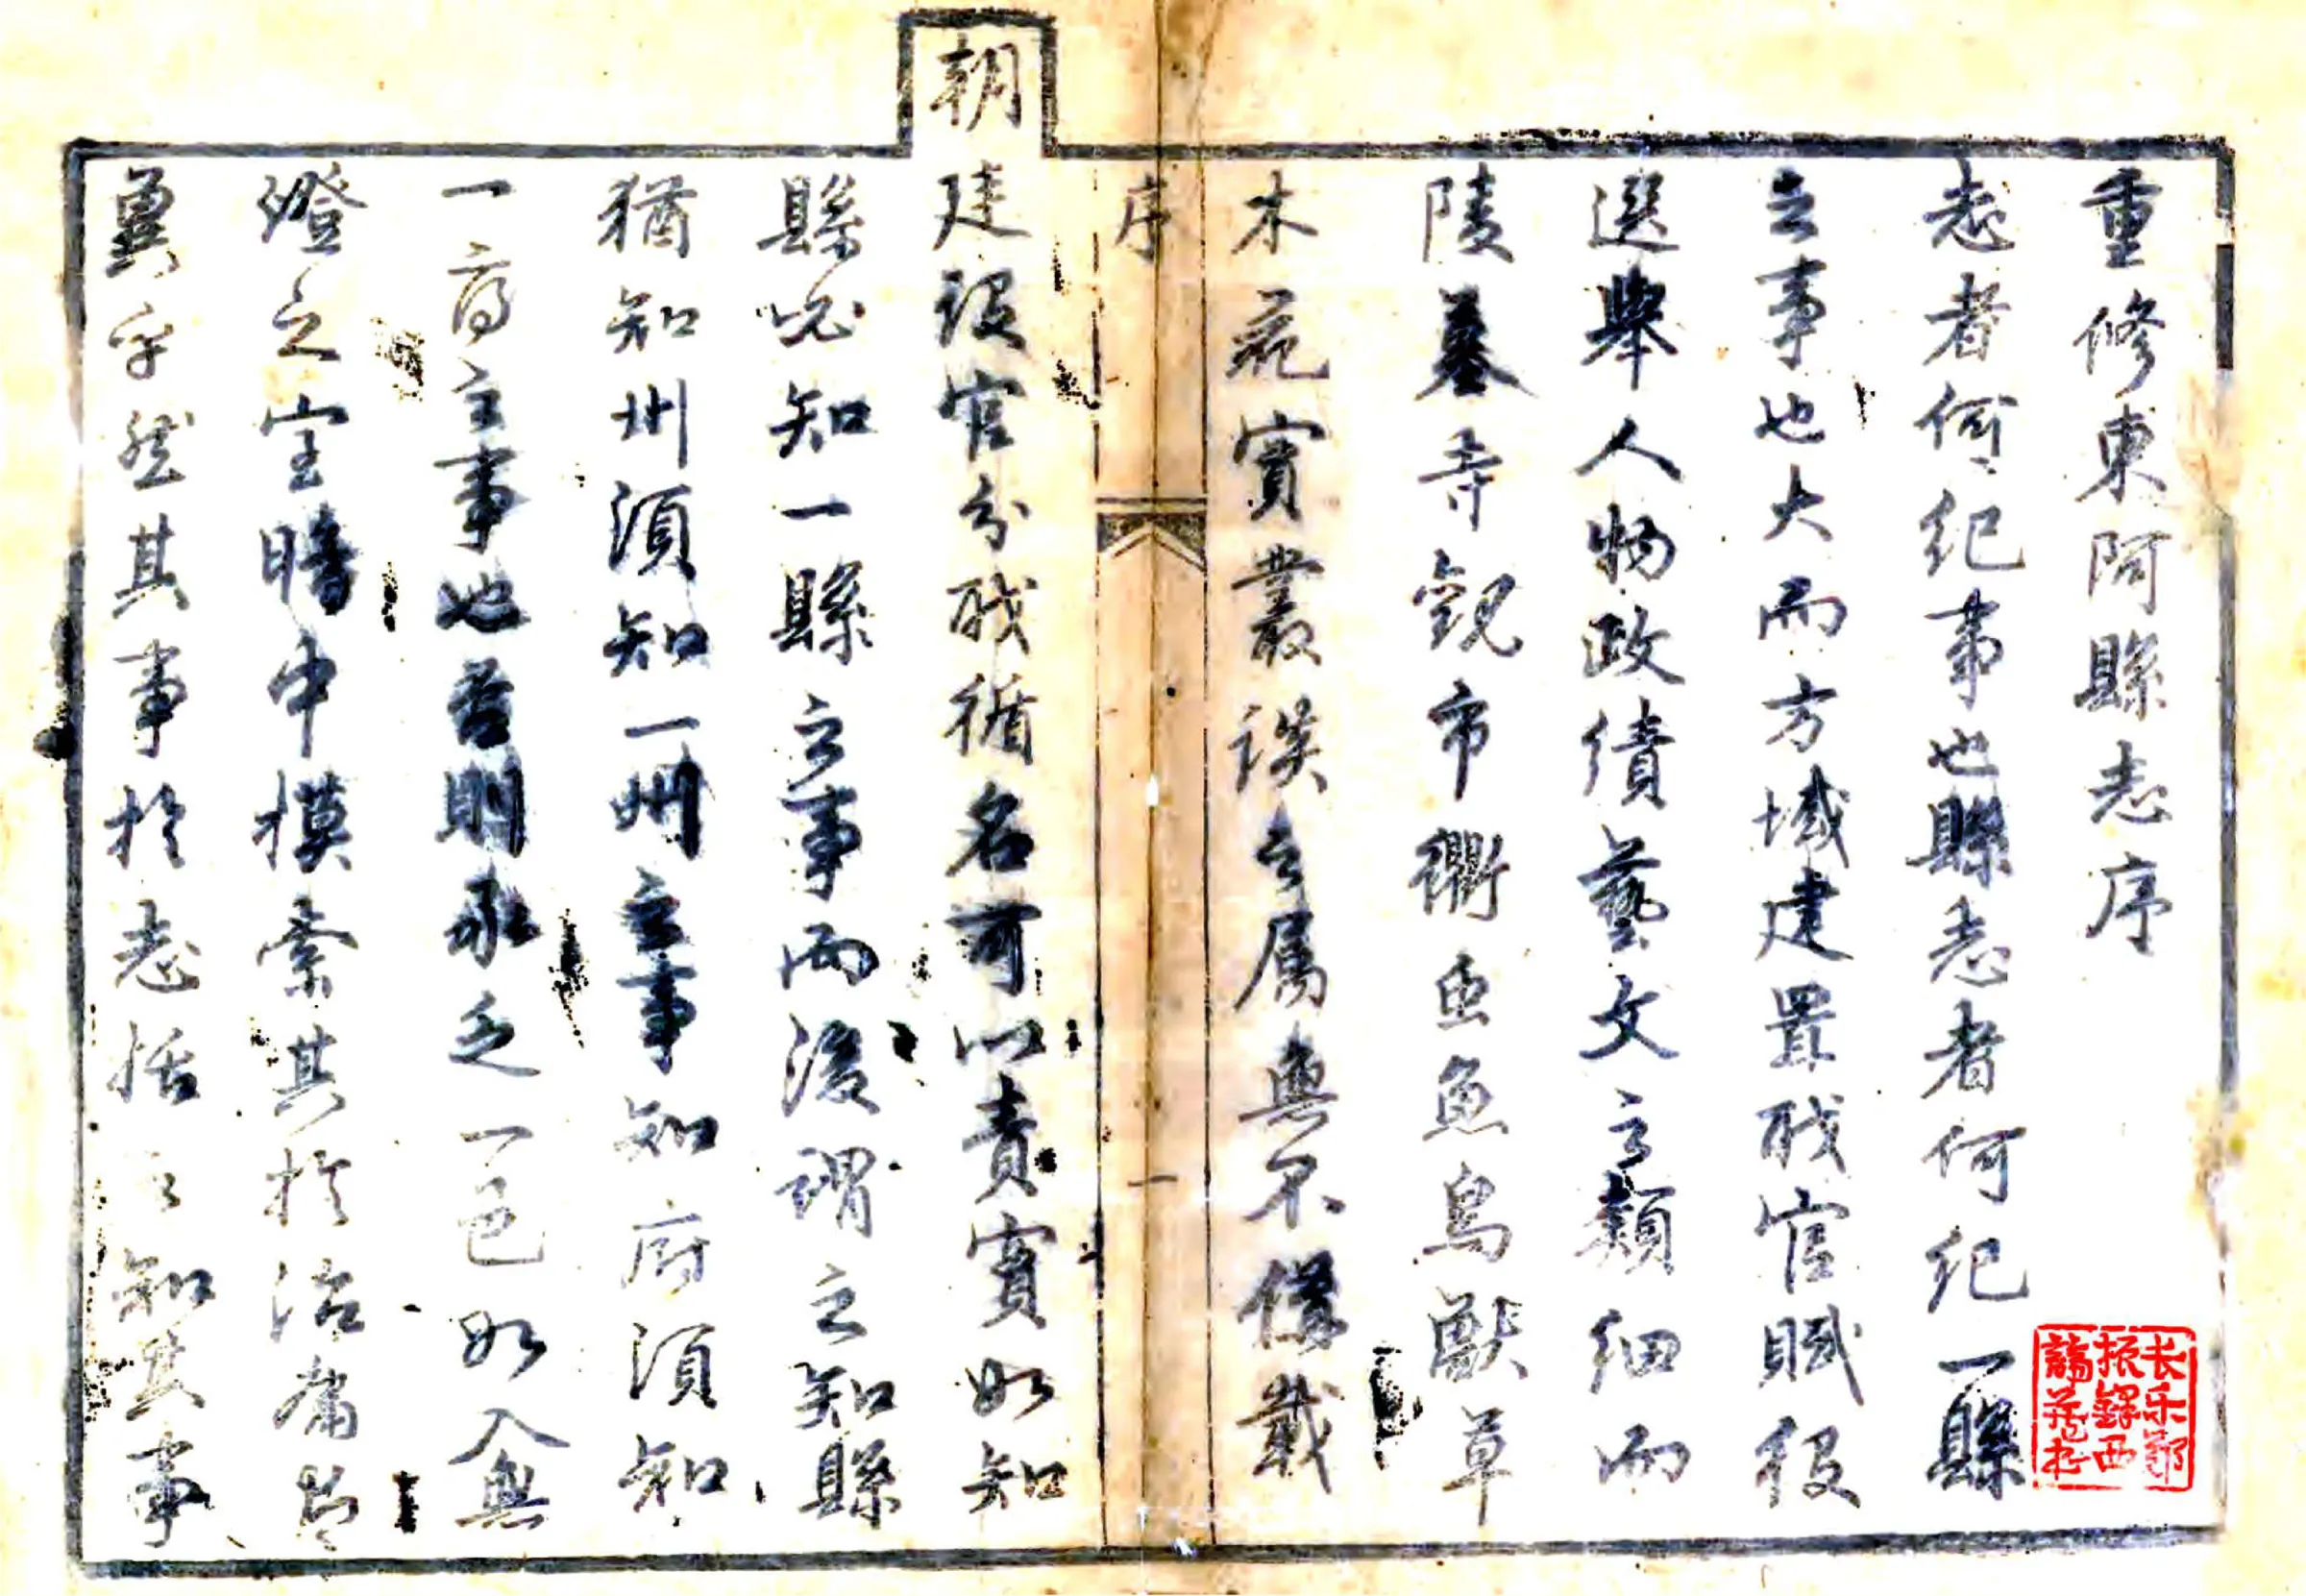 重修東阿縣志序
志者何紀事也縣志者何紀一縣
之事也大而方域建置職官賦役
選舉人物政績藝文之類細而
陵墓寺觀市衢虫魚鳥獸草
木花實叢談之属無不俻載
序
一
朝
廷設官分職循名可以責實如知
縣必知一縣之事而後謂之知縣
猶知州須知一州之事知府須知
一府之事也否則承乏一邑如入無
燈之室暗中摸索其於治庸有
冀乎然其事於志括之知其事
长乐郑
振鐸西
諦藏书